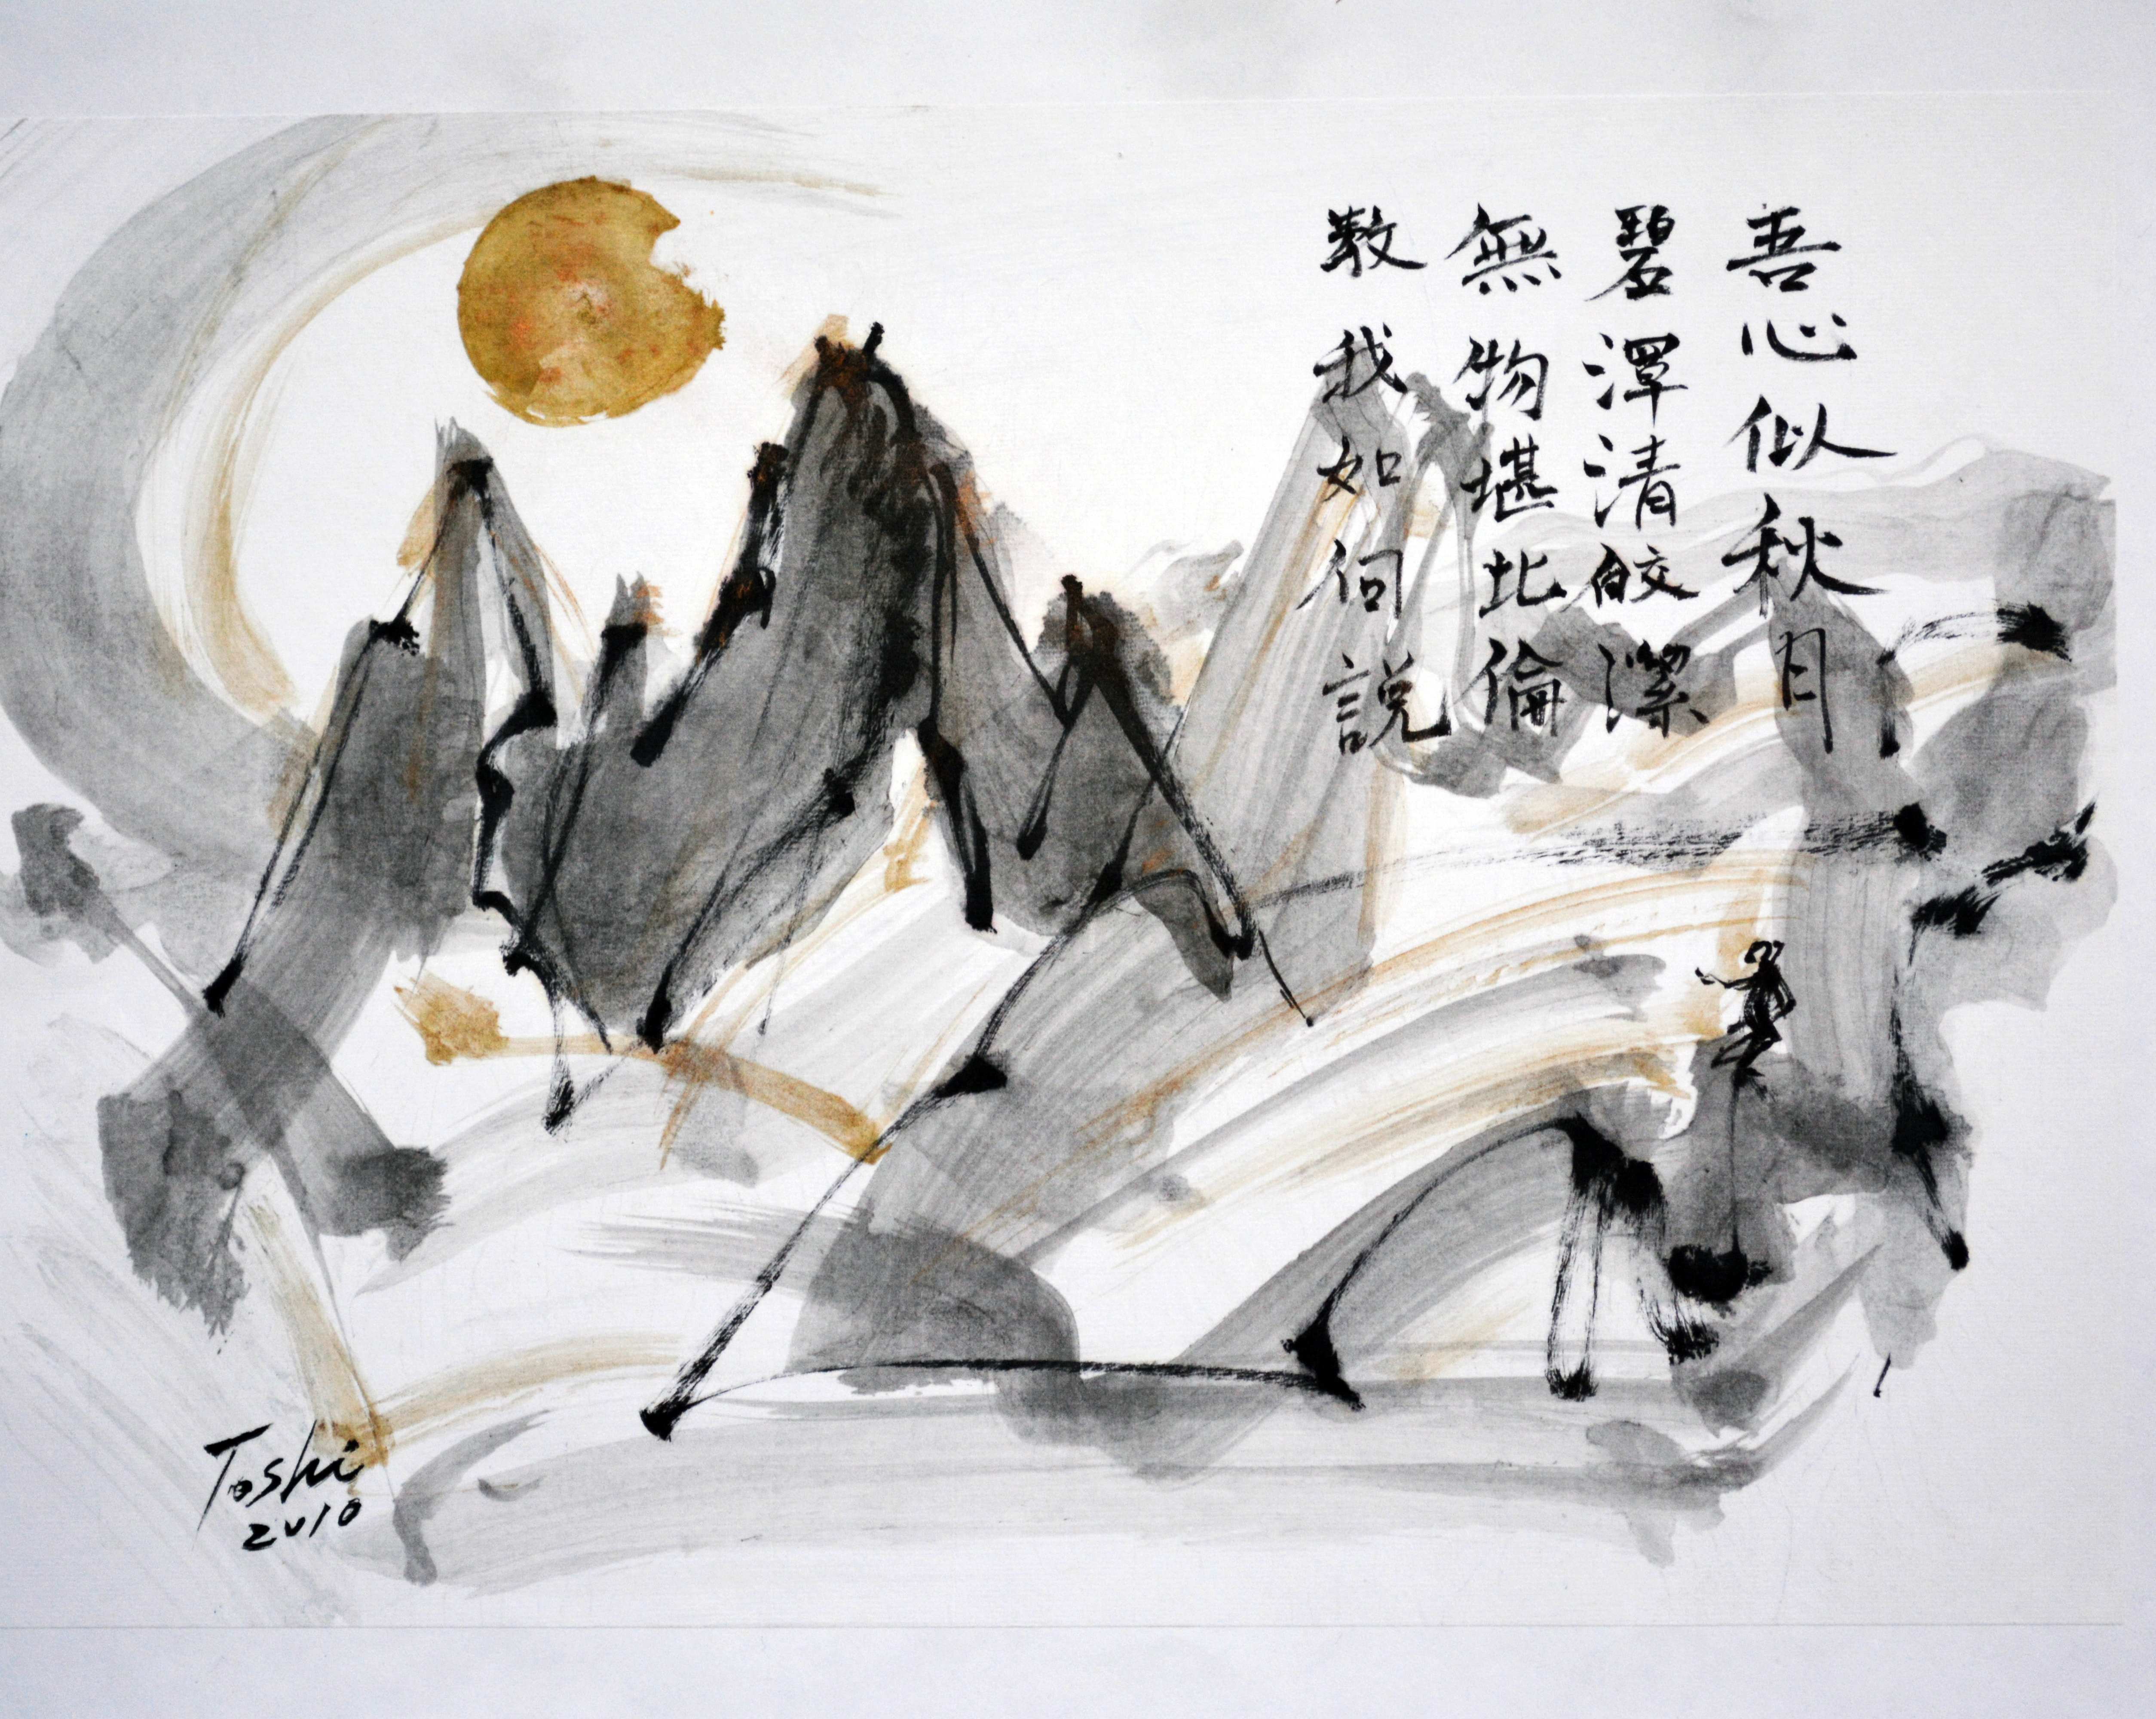 吾心似秋月
碧潭清皎潔
無物堪比倫
教我如何説
Toshi
2010